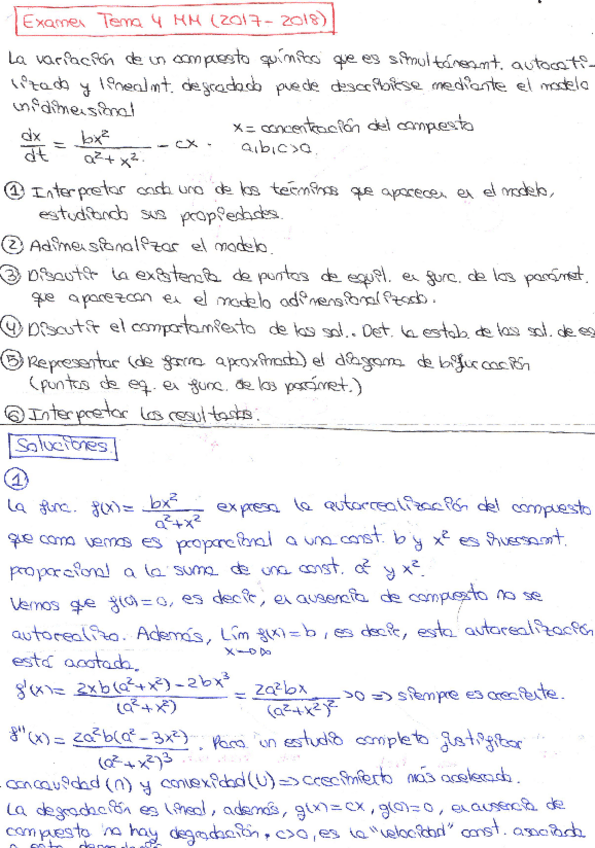 Examen Tema 4 MM (2017-2018)
La variación de un compuesto químico que es simultáneamt. autocata-
lizado y linealmt. degradado puede describirse mediante el modelo
unidimensional
dx/dt = bx²/(a²+x²) - cx.   x = concentración del compuesto
a,b,c>0.
① Interpretar cada uno de los términos que aparecen en el modelo,
estudiando sus propiedades.
② Adimensionalizar el modelo.
③ Discutir la existencia de puntos de equil. en func. de los parámet.
que aparezcan en el modelo adimensionalizado.
④ Discutir el comportamiento de las sol.. Det. la estab. de las sol. de es
⑤ Representar (de forma aproximada) el diagrama de bifurcación
(puntos de eq. en func. de los parámet.)
⑥ Interpretar los resultados.
Soluciones
①
La func. f(x) = bx²/(a²+x²) expresa la autorrealización del compuesto
que como vemos es proporcional a una const. b y x² es inversamt.
proporcional a la suma de una const. a² y x².
Vemos que f(0)=0, es decir, en ausencia de compuesto no se
autorealiza. Además, lim x→∞ f(x) = b, es decir, esta autorealización
está acotada.
f'(x) = (2xb(a²+x²) - 2bx³)/(a²+x²) = 2a²bx/(a²+x²)² >0 ⇒ siempre es creciente.
f''(x) = 2a²b(a²-3x²)/(a²+x²)³. Para un estudio completo justificar
concavidad (∩) y convexidad (∪) ⇒ crecimiento más acelerado.
La degradación es lineal, además, g(x) = cx, g(0)=0, en ausencia de
compuesto no hay degradación, c>0, es la "velocidad" const. asociada
a esta